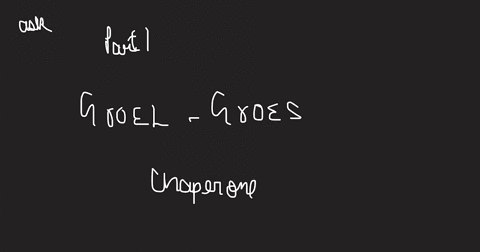 ask
Part 1
GroEL - GroES
Chaperone